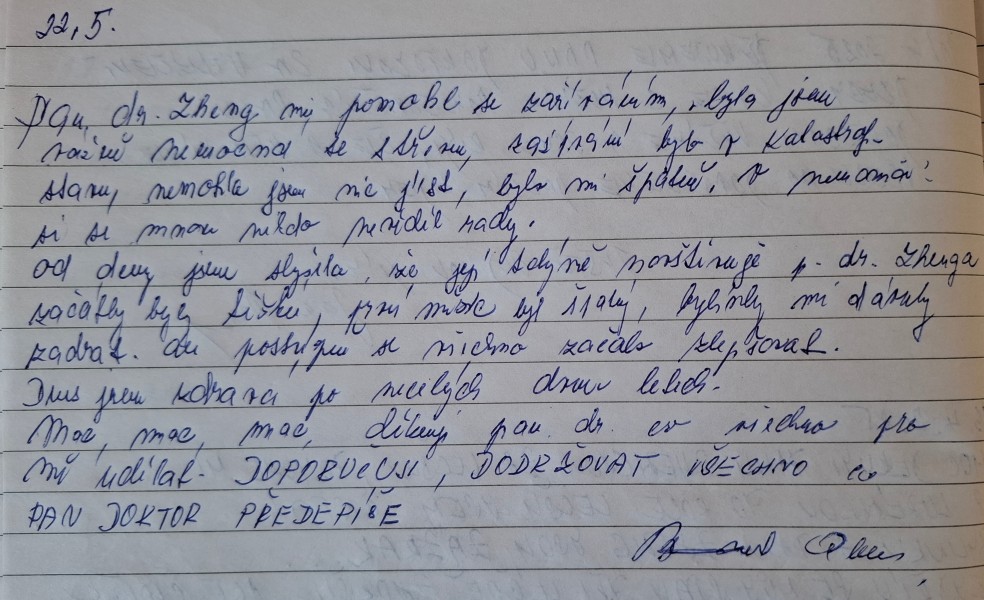 22.5.
Pan, dr. Zheng mi pomohl se zažíváním, byla jsem
vážně nemocná se střevy, zažívání bylo v katastrof.
stavu, nemohla jsem nic jíst, bylo mi špatně, v nemocnici
si se mnou nikdo nevěděl rady.
od jsem slyšela, že její p. dr. Zhenga
začátky byly těžké, první měsíc byl, bylinky mi dávaly
zabrat. ale postupně se všechno začalo zlepšovat.
Dnes jsem zdravá po necelých dvou letech.
Moc, moc, moc, děkuji pan. dr. co všechno pro
mě udělal. DOPORUČUJI, DODRŽOVAT VŠECHNO co
PAN DOKTOR PŘEDEPÍŠE